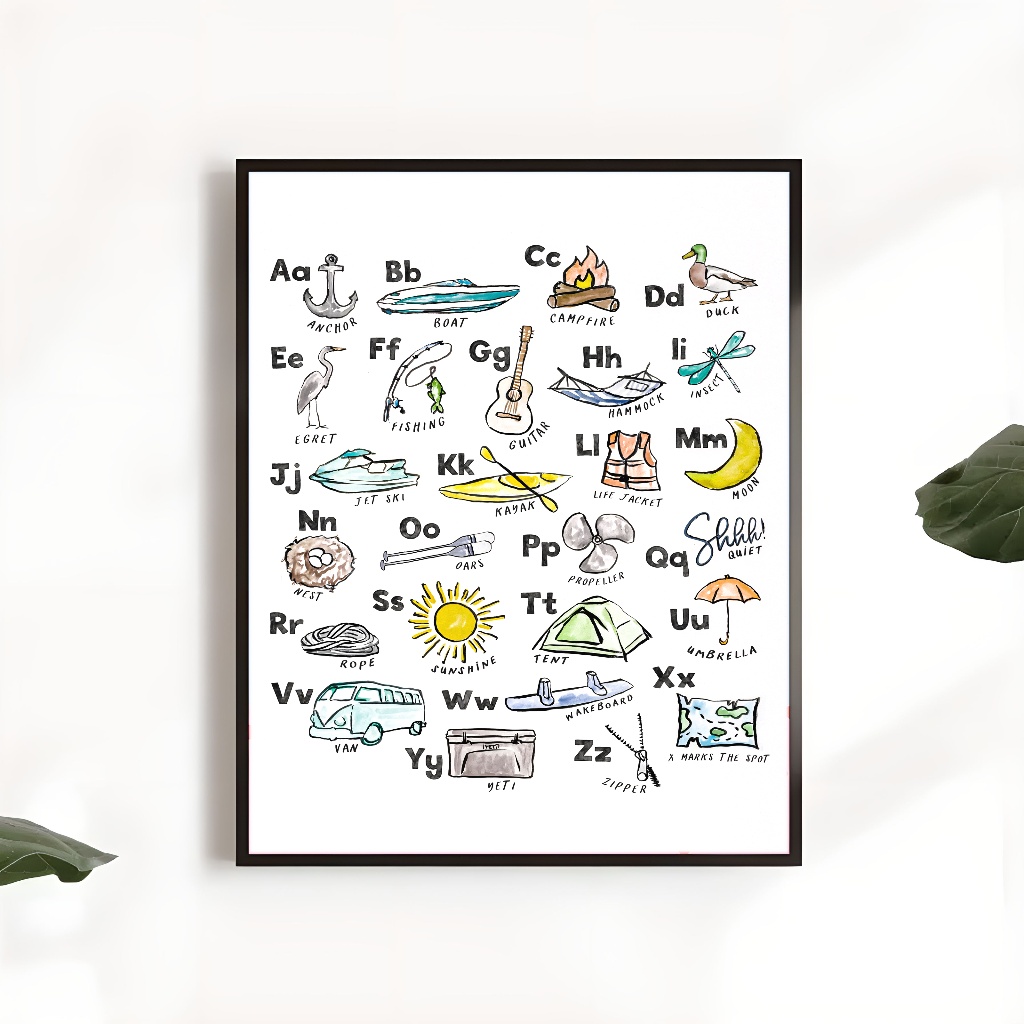 Aa
ANCHOR
Bb
BOAT
Cc
CAMPFIRE
Dd
DUCK
Ee
EGRET
Ff
FISHING
Gg
GUITAR
Hh
HAMMOCK
Ii
INSECT
Jj
JET SKI
Kk
KAYAK
Ll
LIFE JACKET
Mm
MOON
Nn
NEST
Oo
OARS
Pp
PROPELLER
Qq
Shhh!
QUIET
Rr
ROPE
Ss
SUNSHINE
Tt
TENT
Uu
UMBRELLA
Vv
VAN
Ww
WAKEBOARD
Xx
X MARKS THE SPOT
Yy
YETI
YETI
Zz
ZIPPER